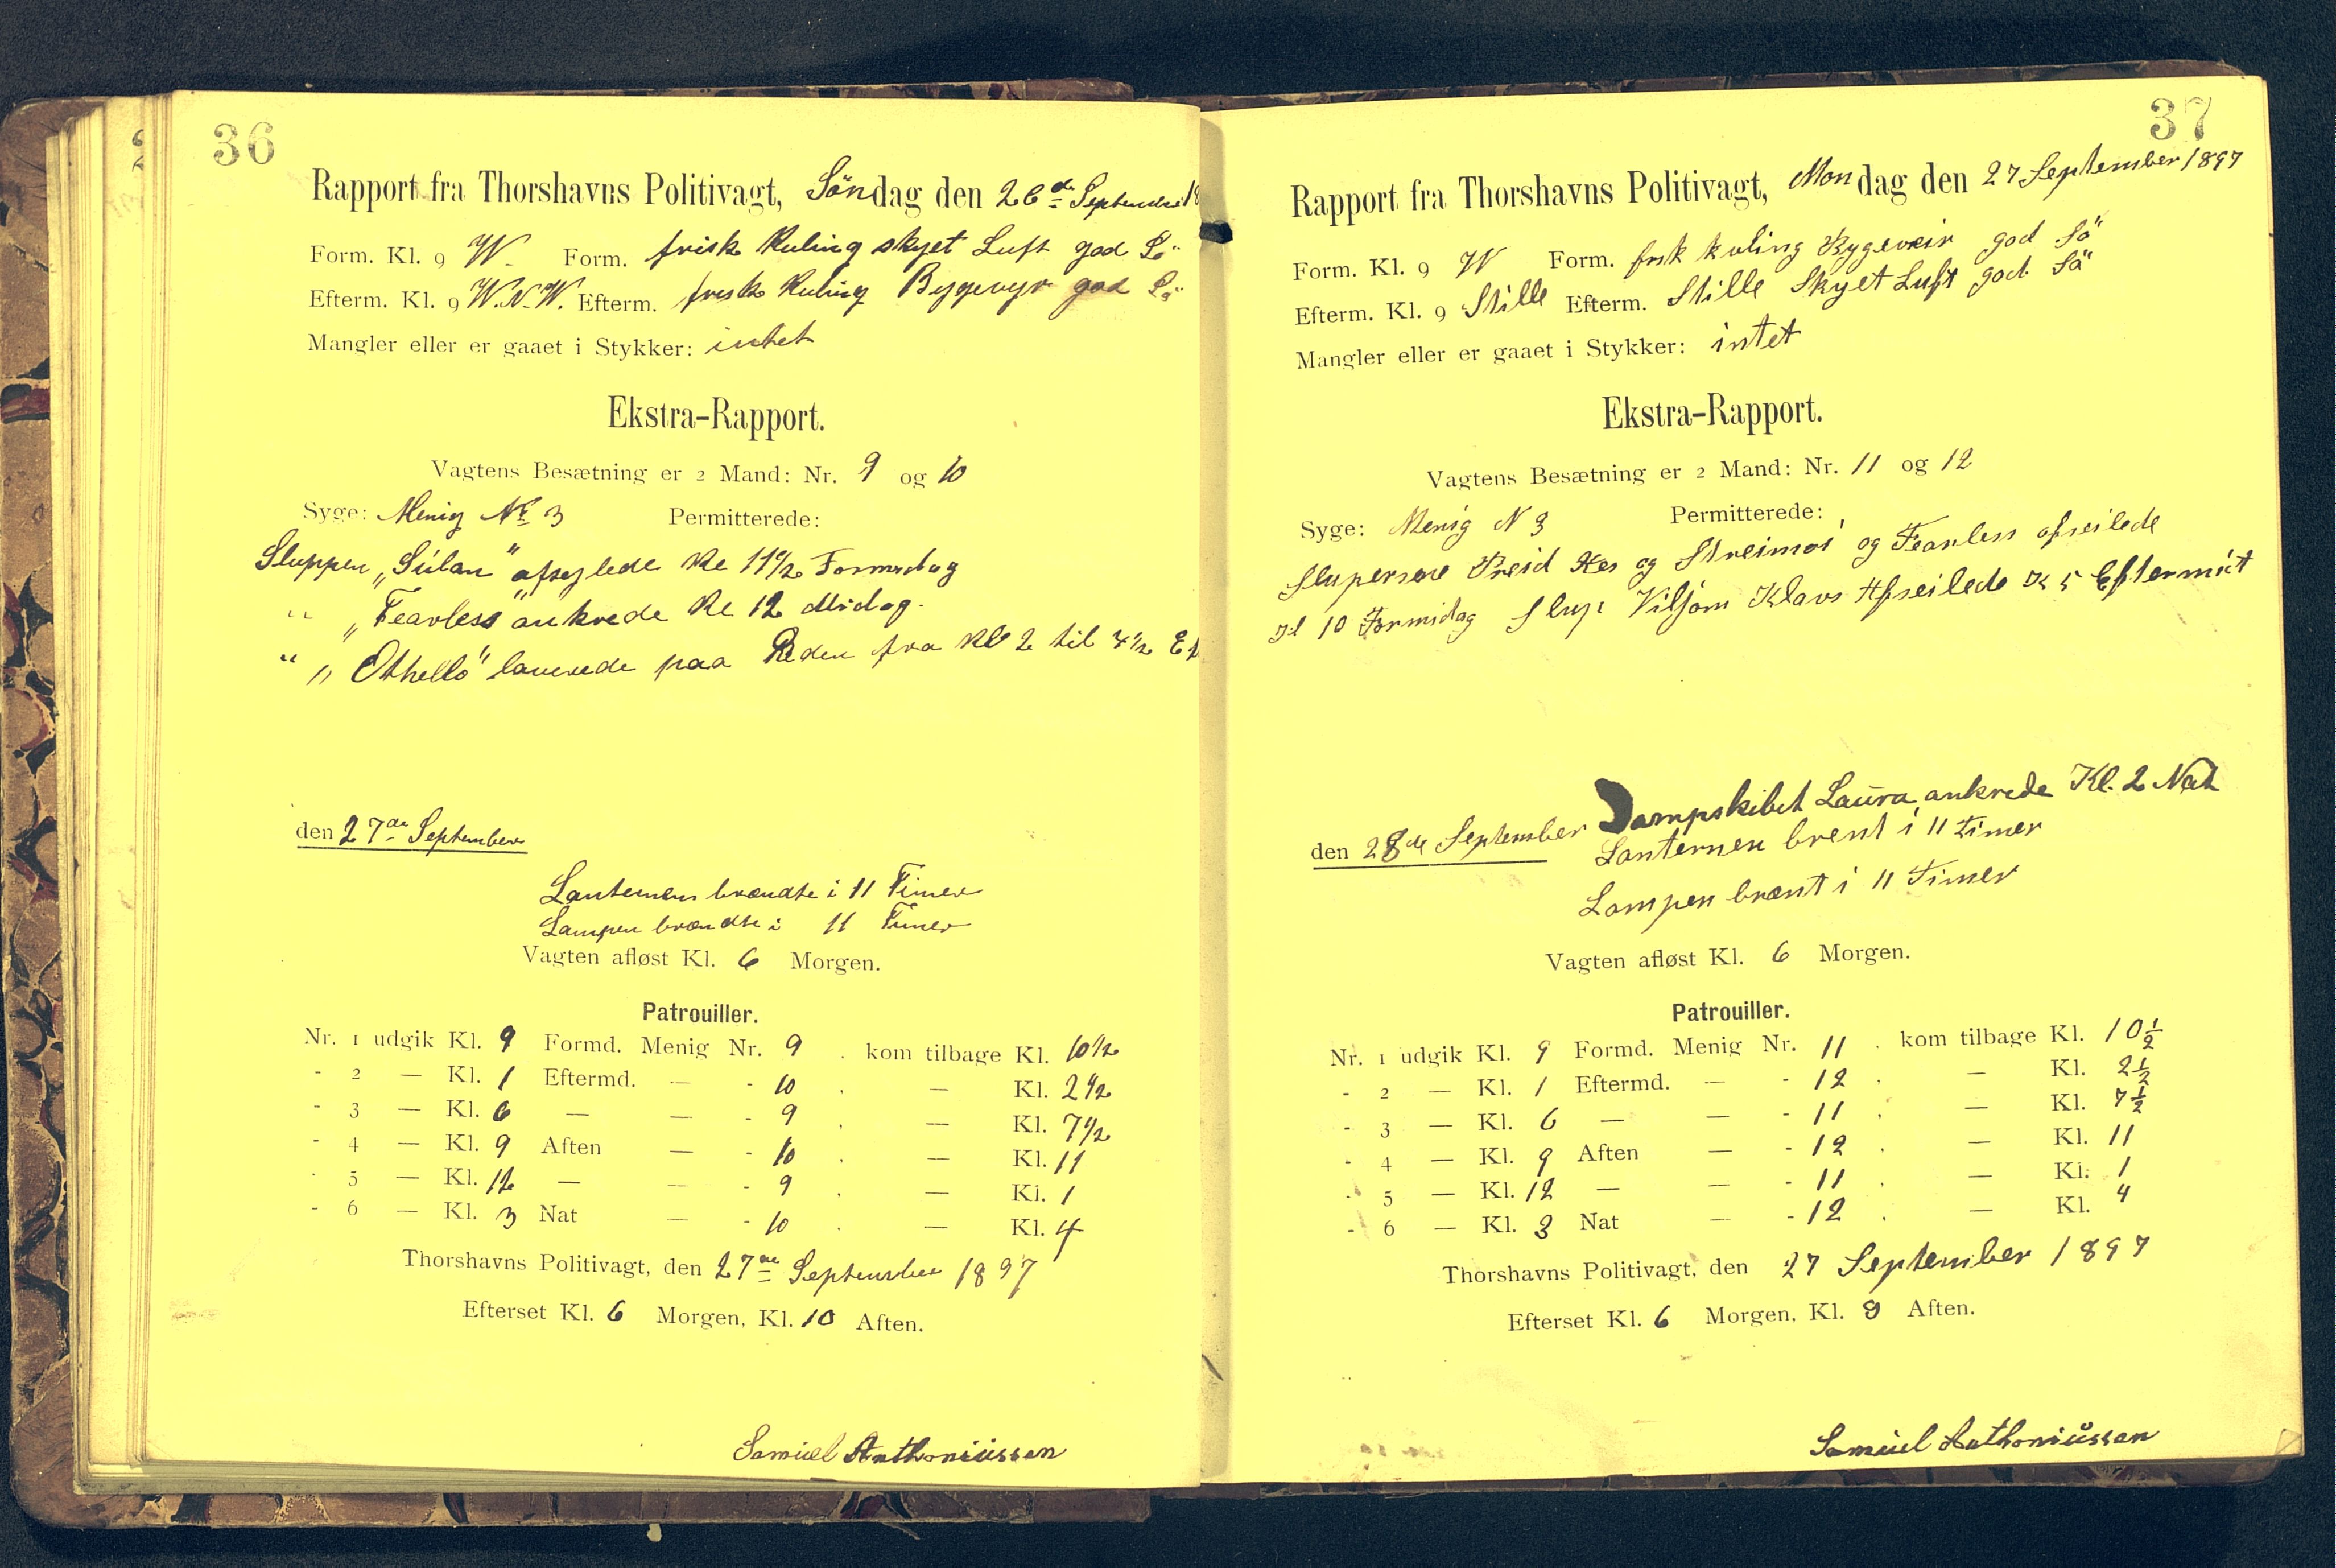 36
Rapport fra Thorshavns Politivagt, Söndag den 26de September 18
Form. Kl. 9 W. Form. frisk Kuling skyet Luft god Sö
Efterm. Kl. 9 W.N.W. Efterm. frisk Kuling Bygevyr god Sö
Mangler eller er gaaet i Stykker: intet
Ekstra-Rapport.
Vagtens Besætning er 2 Mand: Nr. 9 og 10
Syge: Menig No 3 Permitterede:
Sluppen „Súlan" afsejlede Kl 11 1/2 Formidag
" „Fearless" ankrede Kl 12 Midag.
" „Othello" laverede paa Reden fra Kl 2 til 4 1/2 Ef
den 27de September
Lanternen brændte i 11 Timer
Lampen brændte i 11 Timer
Vagten afløst Kl. 6 Morgen.
Patrouiller.
Nr. 1 udgik Kl. 9 Formd. Menig Nr. 9 . kom tilbage Kl. 10 1/2
- 2 — Kl. 1 Eftermd. — - 10 . — Kl. 2 1/2
- 3 — Kl. 6 — — - 9 . — Kl. 7 1/2
- 4 — Kl. 9 Aften — - 10 . — Kl. 11
- 5 — Kl. 12 — — - 9 . — Kl. 1
- 6 — Kl. 3 Nat — - 10 . — Kl. 4
Thorshavns Politivagt, den 27de September 1897
Efterset Kl. 6 Morgen, Kl. 10 Aften.
Samúel Anthoniússen
37
Rapport fra Thorshavns Politivagt, Mondag den 27 September 1897
Form. Kl. 9 W Form. frsk kuling Bygeveir god Sö
Efterm. Kl. 9 Stille Efterm. Stille Skyet Luft god Sö
Mangler eller er gaaet i Stykker: intet
Ekstra-Rapport.
Vagtens Besætning er 2 Mand: Nr. 11 og 12
Syge: Menig N 3 Permitterede:
Slupersne og Streimoi og Fearless afseilede
Kl 10 Formidag Slup Viljom Klavs Afseilede K 5 Eftermit
Dampskibet Laura ankrede Kl. 2 Nat
den 28de September Lanternen brent i 11 Timer
Lampen brænt i 11 Timer
Vagten afløst Kl. 6 Morgen.
Patrouiller.
Nr. 1 udgik Kl. 9 Formd. Menig Nr. 11 . kom tilbage Kl. 10 1/2
- 2 — Kl. 1 Eftermd. — - 12 . — Kl. 2 1/2
- 3 — Kl. 6 — — - 11 . — Kl. 7 1/2
- 4 — Kl. 9 Aften — - 12 . — Kl. 11
- 5 — Kl. 12 — — - 11 . — Kl. 1
- 6 — Kl. 3 Nat — - 12 . — Kl. 4
Thorshavns Politivagt, den 27 September 1897
Efterset Kl. 6 Morgen, Kl. 9 Aften.
Samúel Anthoniússen